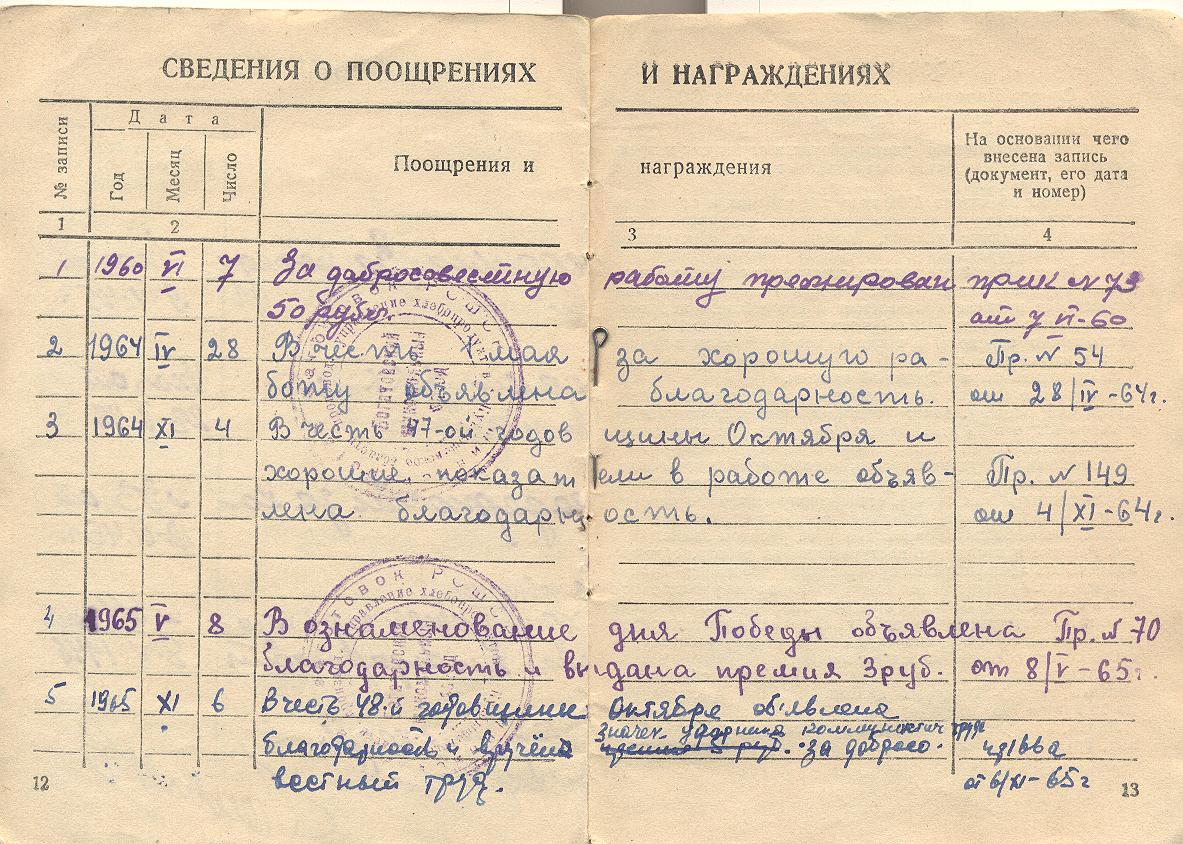 СВЕДЕНИЯ О ПООЩРЕНИЯХ И НАГРАЖДЕНИЯХ
№ записи
Дата
Год
Месяц
Число
Поощрения и награждения
На основании чего
внесена запись
(документ, его дата
и номер)
1 2 3 4
1 1960 VI 7 За добросовестную работу премирован N 73
50 рубл. от 7 VI-60
2 1964 IV 28 В честь 1 мая за хорошую ра- Пр. N 54
боту объявлена благодарность. от 28/IV-64г.
3 1964 XI 4 В честь 47-ой годов щины Октября и
хорошие показат ели в работе объяв- Пр. N 149
лена благодарн ость. от 4/XI-64г.
4 1965 V 8 В ознаменование дня Победы объявлена Пр. N 70
благодарность и выдана премия 3 руб. от 8/V-65г.
5 1965 XI 6 В честь 48-й годовщины Октября объявлена
значек ударника коммунистич труда
благодарность и вручён за добросо-
вестный труд. от 6/XI-65г
12 13